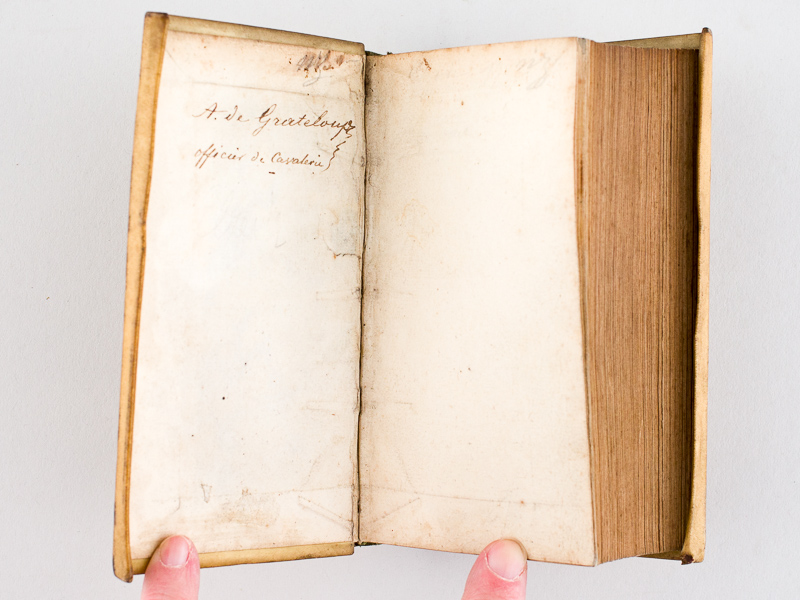 A. de Grateloup
officier de Cavalerie